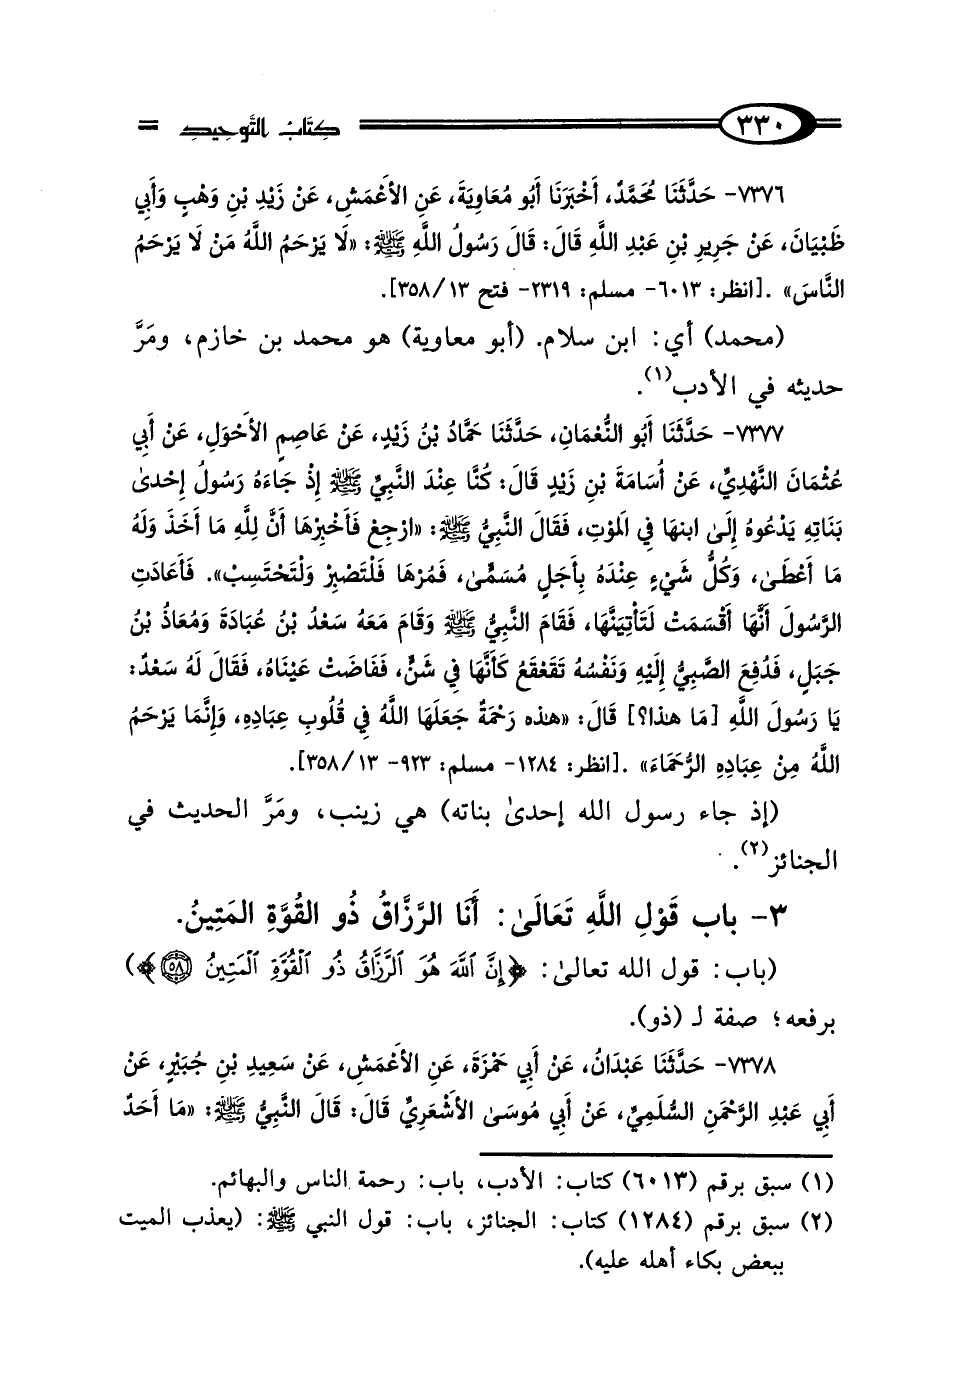 ٣٣٠ كتاب التوحيد =
٧٣٧٦- حَدَّثَنَا مُحَمَّدٌ، أَخْبَرَنَا أَبُو مُعَاوِيَةَ، عَنِ الأَعْمَشِ، عَنْ زَيْدِ بْنِ وَهْبٍ وَأَبِي
ظَبْيَانَ، عَنْ جَرِيرِ بْنِ عَبْدِ اللَّهِ قَالَ: قَالَ رَسُولُ اللَّهِ ﷺ: «لَا يَرْحَمُ اللَّهُ مَنْ لَا يَرْحَمُ
النَّاسَ» .[انظر: ٦٠١٣- مسلم: ٢٣١٩- فتح ١٣/ ٣٥٨].
(محمد) أي: ابن سلام. (أبو معاوية) هو محمد بن خازم، ومَرَّ
حديثه في الأدب(١).
٧٣٧٧- حَدَّثَنَا أَبُو النُّعْمَانِ، حَدَّثَنَا حَمَّادُ بْنُ زَيْدٍ، عَنْ عَاصِمٍ الأَحْوَلِ، عَنْ أَبِي
عُثْمَانَ النَّهْدِيِّ، عَنْ أُسَامَةَ بْنِ زَيْدٍ قَالَ: كُنَّا عِنْدَ النَّبِيِّ ﷺ إِذْ جَاءَهُ رَسُولُ إِحْدىٰ
بَنَاتِهِ يَدْعُوهُ إِلَىٰ ابنهَا فِي المَوْتِ، فَقَالَ النَّبِيُّ ﷺ: «ارْجِعْ فَأَخْبِرْهَا أَنَّ لِلَّهِ مَا أَخَذَ وَلَهُ
مَا أَعْطَىٰ، وَكُلُّ شَيْءٍ عِنْدَهُ بِأَجَلٍ مُسَمًّىٰ، فَمُرْهَا فَلْتَصْبِرْ وَلْتَحْتَسِبْ». فَأَعَادَتِ
الرَّسُولَ أَنَّهَا أَقْسَمَتْ لَتَأْتِيَنَّهَا، فَقَامَ النَّبِيُّ ﷺ وَقَامَ مَعَهُ سَعْدُ بْنُ عُبَادَةَ وَمُعَاذُ بْنُ
جَبَلٍ، فَدُفِعَ الصَّبِيُّ إِلَيْهِ وَنَفْسُهُ تَقَعْقَعُ كَأَنَّهَا فِي شَنٍّ، فَفَاضَتْ عَيْنَاهُ، فَقَالَ لَهُ سَعْدٌ:
يَا رَسُولَ اللَّهِ [مَا هٰذا؟] قَالَ: «هٰذه رَحْمَةٌ جَعَلَهَا اللَّهُ فِي قُلُوبِ عِبَادِهِ، وَإِنَّمَا يَرْحَمُ
اللَّهُ مِنْ عِبَادِهِ الرُّحَمَاءَ» .[انظر: ١٢٨٤- مسلم: ٩٢٣- ١٣/ ٣٥٨].
(إذ جاء رسول الله إحدىٰ بناته) هي زينب، ومَرَّ الحديث في
الجنائز(٢).
٣- باب قَوْلِ اللَّهِ تَعَالَىٰ: أَنَا الرَّزَّاقُ ذُو القُوَّةِ المَتِينُ.
(باب: قول الله تعالىٰ: ﴿إِنَّ ٱللَّهَ هُوَ ٱلرَّزَّاقُ ذُو ٱلْقُوَّةِ ٱلْمَتِينُ ٥٨﴾)
برفعه؛ صفة لـ (ذو).
٧٣٧٨- حَدَّثَنَا عَبْدَانُ، عَنْ أَبِي حَمْزَةَ، عَنِ الأَعْمَشِ، عَنْ سَعِيدِ بْنِ جُبَيْرٍ، عَنْ
أَبِي عَبْدِ الرَّحْمَنِ السُّلَمِيِّ، عَنْ أَبِي مُوسَىٰ الأَشْعَرِيِّ قَالَ: قَالَ النَّبِيُّ ﷺ: «مَا أَحَدٌ
(١) سبق برقم (٦٠١٣) كتاب: الأدب، باب: رحمة الناس والبهائم.
(٢) سبق برقم (١٢٨٤) كتاب: الجنائز، باب: قول النبي ﷺ: (يعذب الميت
ببعض بكاء أهله عليه).